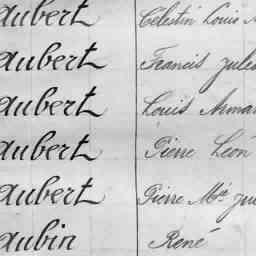 Aubert Célestin Louis
Aubert Francis Jules
Aubert Louis Armand
Aubert Pierre Léon
Aubert Pierre Mie
Aubin René